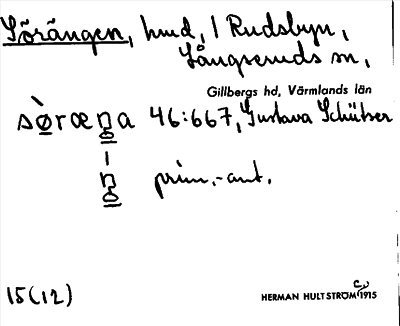 Sörängen, hmd, 1 Rudsbyn,
Långseruds sn,
Gillbergs hd, Värmlands län
sòræŋa 46:667, Gustava Schützer
ŋ prim.-ant.
15(12)
HERMAN HULTSTRÖM 1915